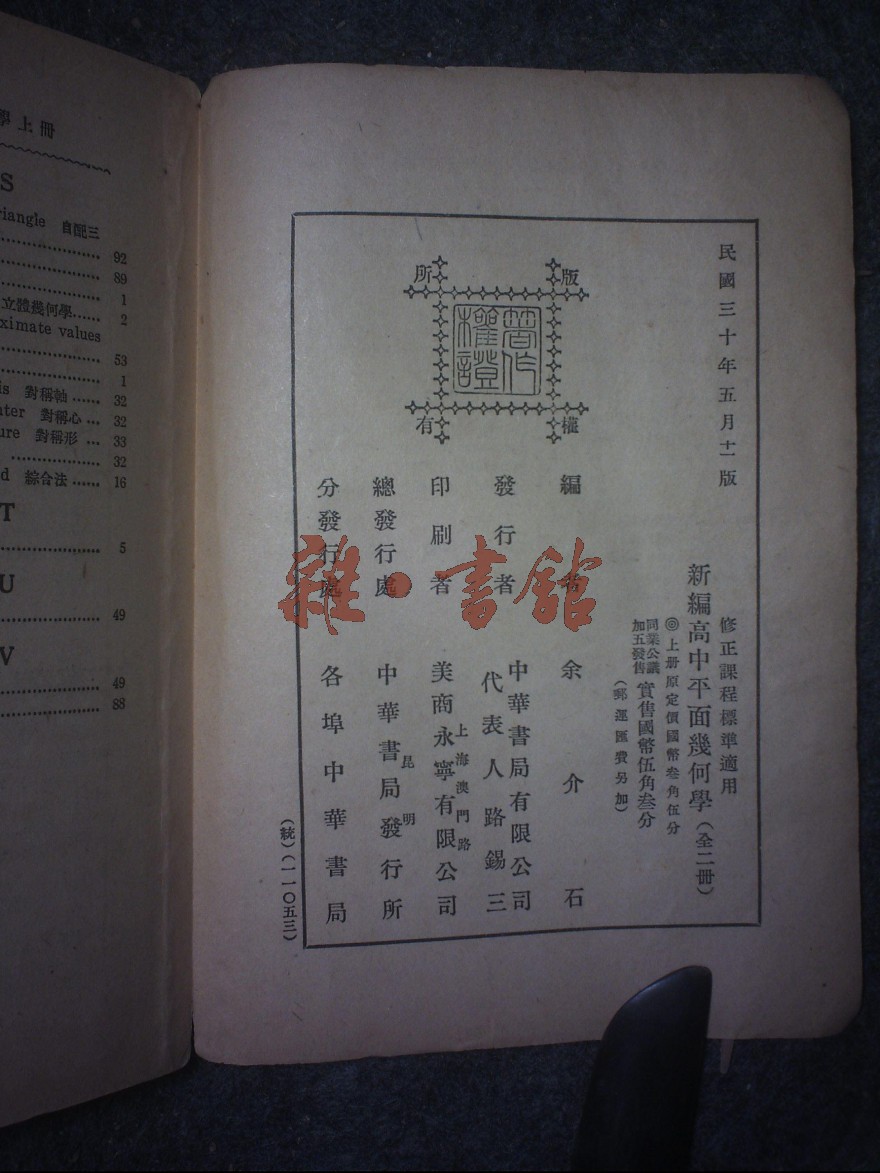 學上冊
S
riangle 自配三
92
89
1
立體幾何學...... 2
ximate values
53
1
is 對稱軸...... 32
nter 對稱心... 32
ure 對稱形... 33
32
d 綜合法...... 16
T
5
U
49
V
49
88
民國三十年五月十二版
修正課程標準適用
新編高中平面幾何學(全二冊)
◎上册原定價國幣叁角伍分
同業公議加五發售 實售國幣伍角叁分
(郵運匯費另加)
版權所有
著作權證
編者 余介石
發行者 中華書局有限公司
代表人路錫三
印刷者 上海澳門路
美商永寧有限公司
總發行處 昆明
中華書局發行所
分發行處 各埠中華書局
(統)(一一〇五三)
雜·書館